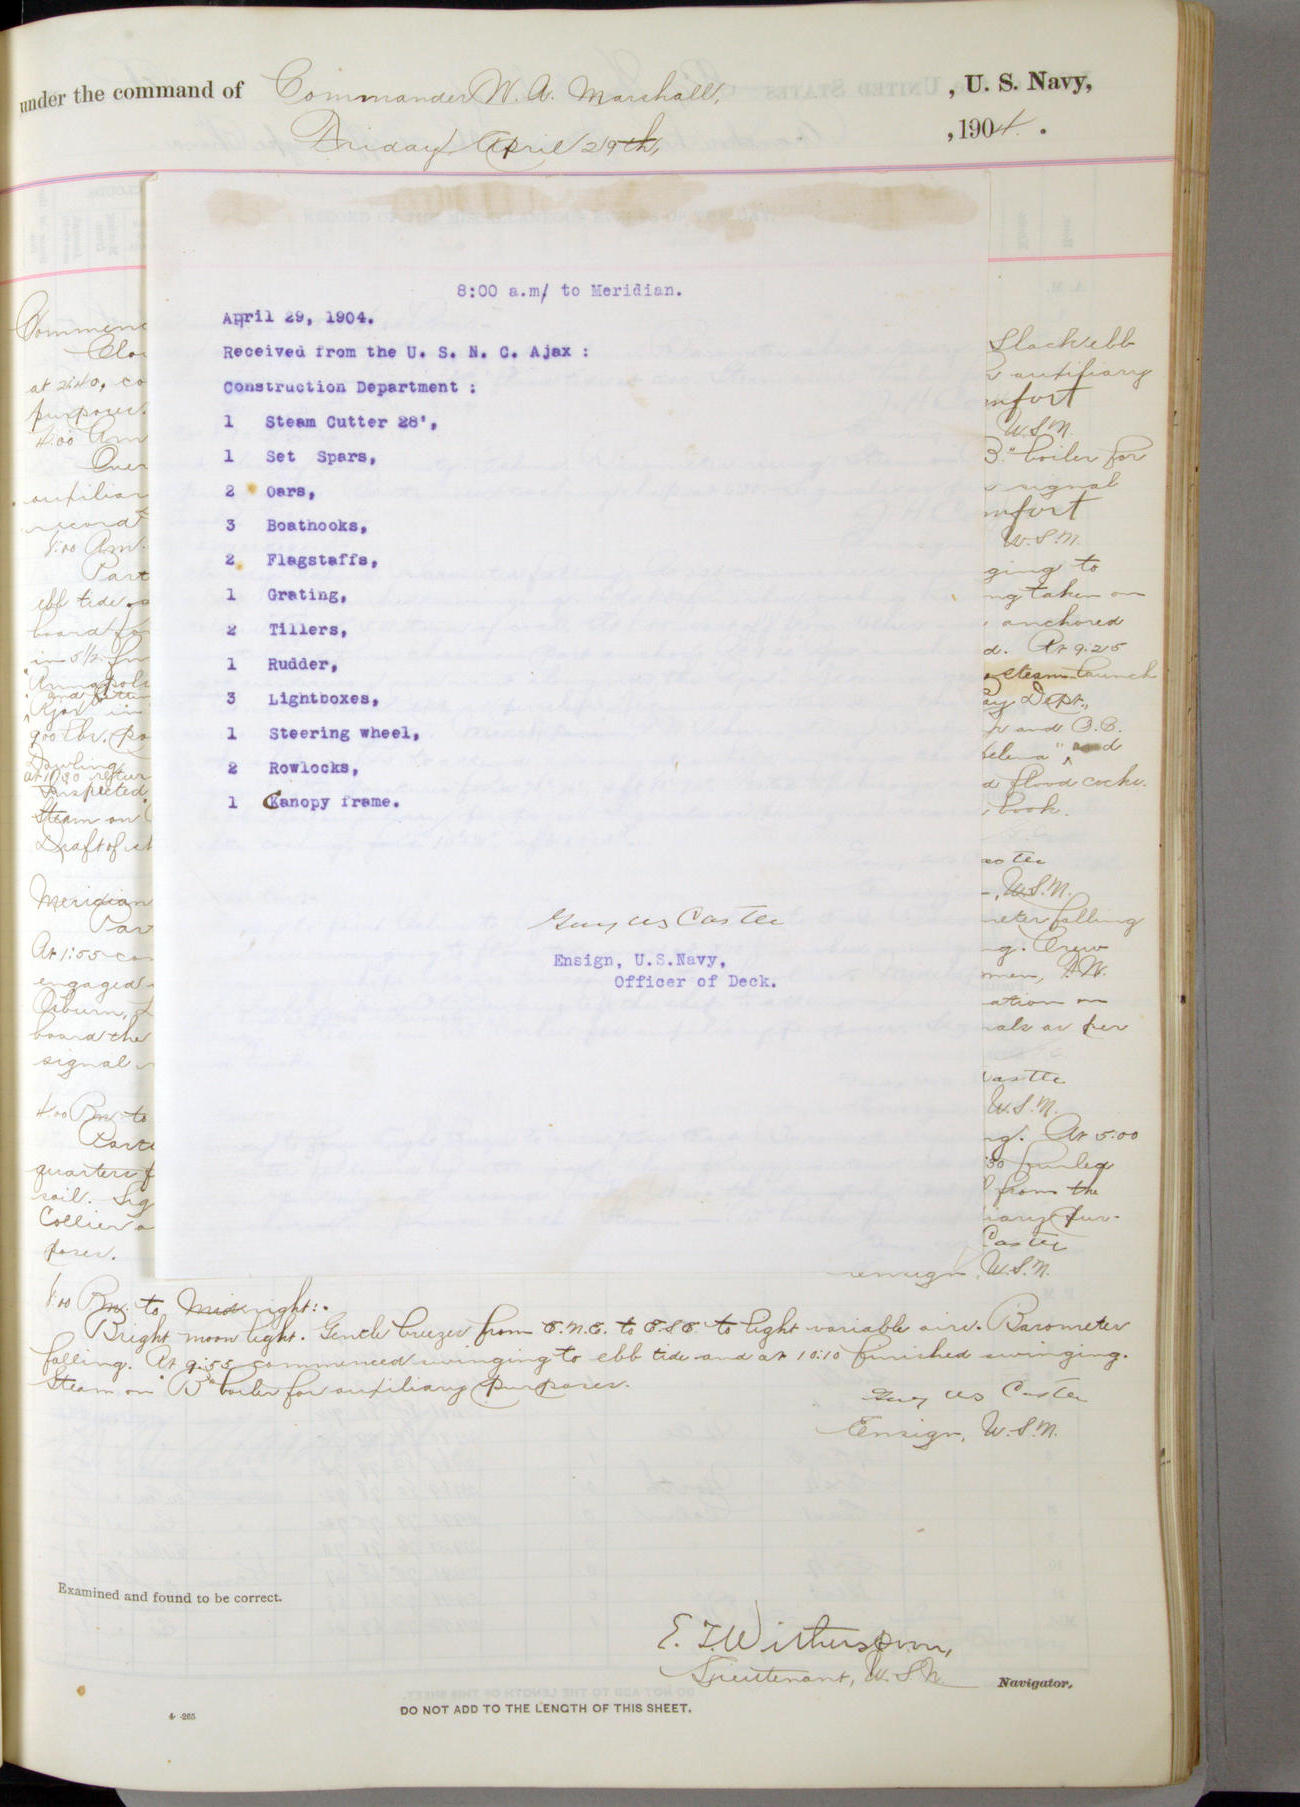 under the command of Commander W. A. Marshall, , U. S. Navy,
Friday April 29th, , 1904 .
8:00 a.m/ to Meridian.
April 29, 1904.
Received from the U. S. N. C. Ajax :
Construction Department :
1 Steam Cutter 28',
1 Set Spars,
2 Oars,
3 Boathooks,
2 Flagstaffs,
1 Grating,
2 Tillers,
1 Rudder,
3 Lightboxes,
1 Steering wheel,
2 Rowlocks,
1 Canopy frame.
Guy W S Castle
Ensign, U.S.Navy,
Officer of Deck.
Commenc
Slack ebb
Clo
auxiliary
at 2:40, co
mfort
purposes.
U.S.N.
4:00 Am
B." boiler for
Over
signal
auxiliar
mfort
record
U.S.N.
8:00 Am.
ging to
Part
ng taken on
ebb tide
anchored
board for
d. At 9:25
in 5 1/2 fm
steam launch
Annapolis
Pay Dept.,
and
Ajax in
900 lbs. po
and O.B.
Dowling
elena" and
at 10:30 retur
Inspected
d flood cocks.
Steam on
book.
Draft of sh
Meridian
U.S.N.
Part
meter falling
At 1:55 co
ng. Crew
engaged
men, P.W.
Oiburn,
ation on
board the
nals as per
signal
Castle
4:00 Pm to
U.S.N.
Part
ng. At 5:00
quarters f
:30 furled
sail. Sig
from the
Collier a
iliary pur-
poses.
Castle
Ensign, U.S.N.
8:00 Pm. to Midnight:.
Bright moon light. Gentle breezes from E.N.E. to E.S.E. to light variable airs. Barometer
falling. At 9:55 commenced swinging to ebb tide and at 10:10 finished swinging.
Steam on "B" boiler for auxiliary purposes.
Guy W S Castle
Ensign, U.S.N.
Examined and found to be correct.
E. T. Witherspoon,
Lieutenant, U.S.N. Navigator.
DO NOT ADD TO THE LENGTH OF THIS SHEET.
4-265